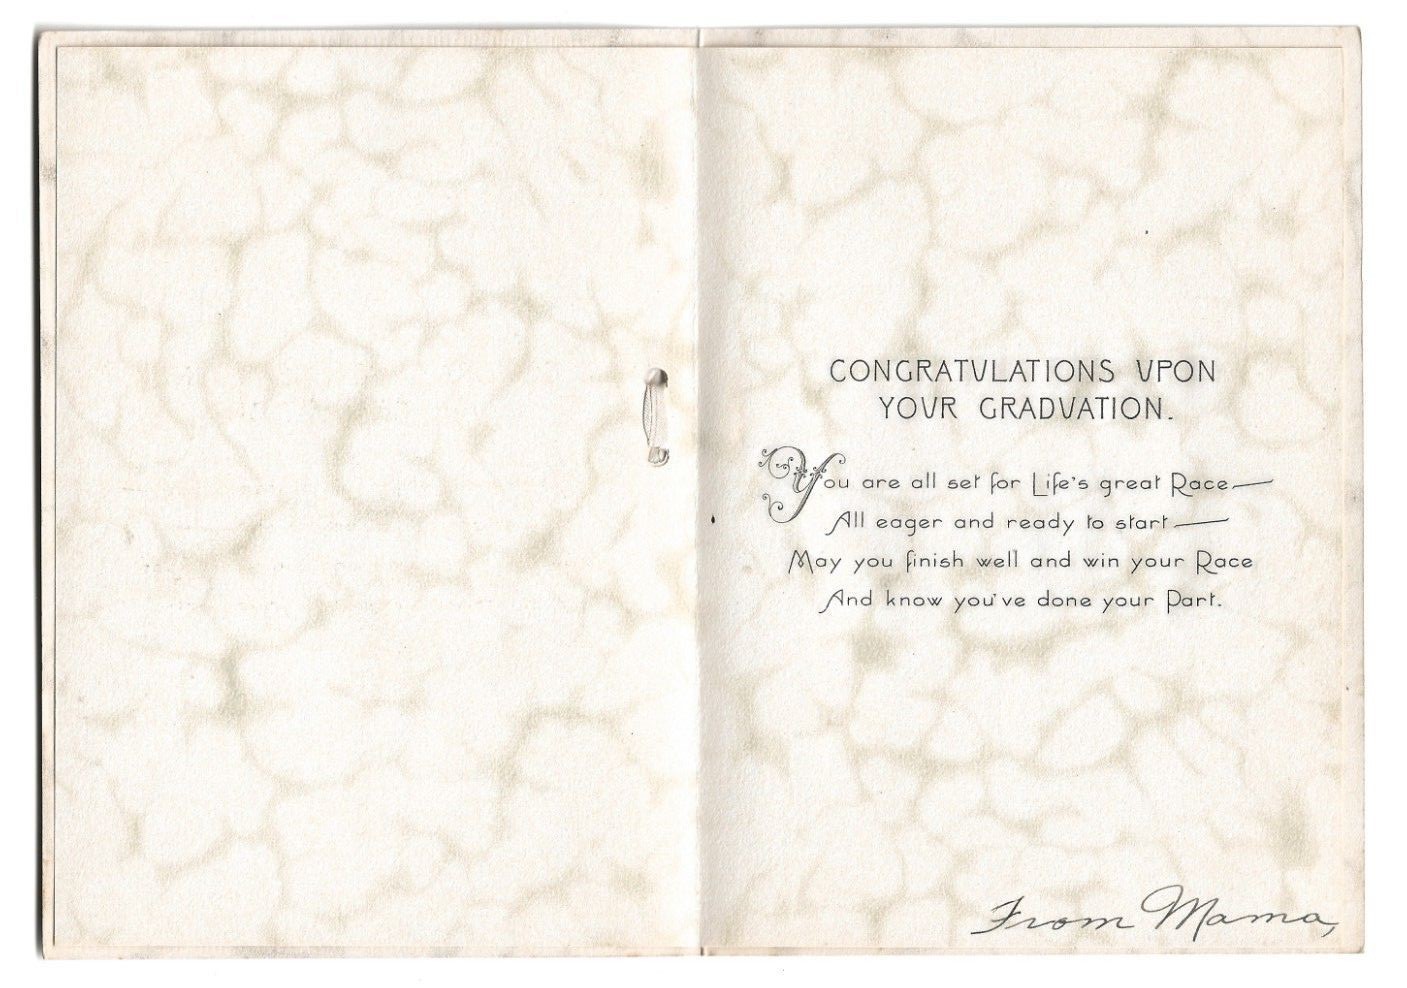 CONGRATVLATIONS VPON
YOVR GRADVATION.
You are all set for Life's great Race—
All eager and ready to start—
May you finish well and win your Race
And know you've done your Part.
From Mama,